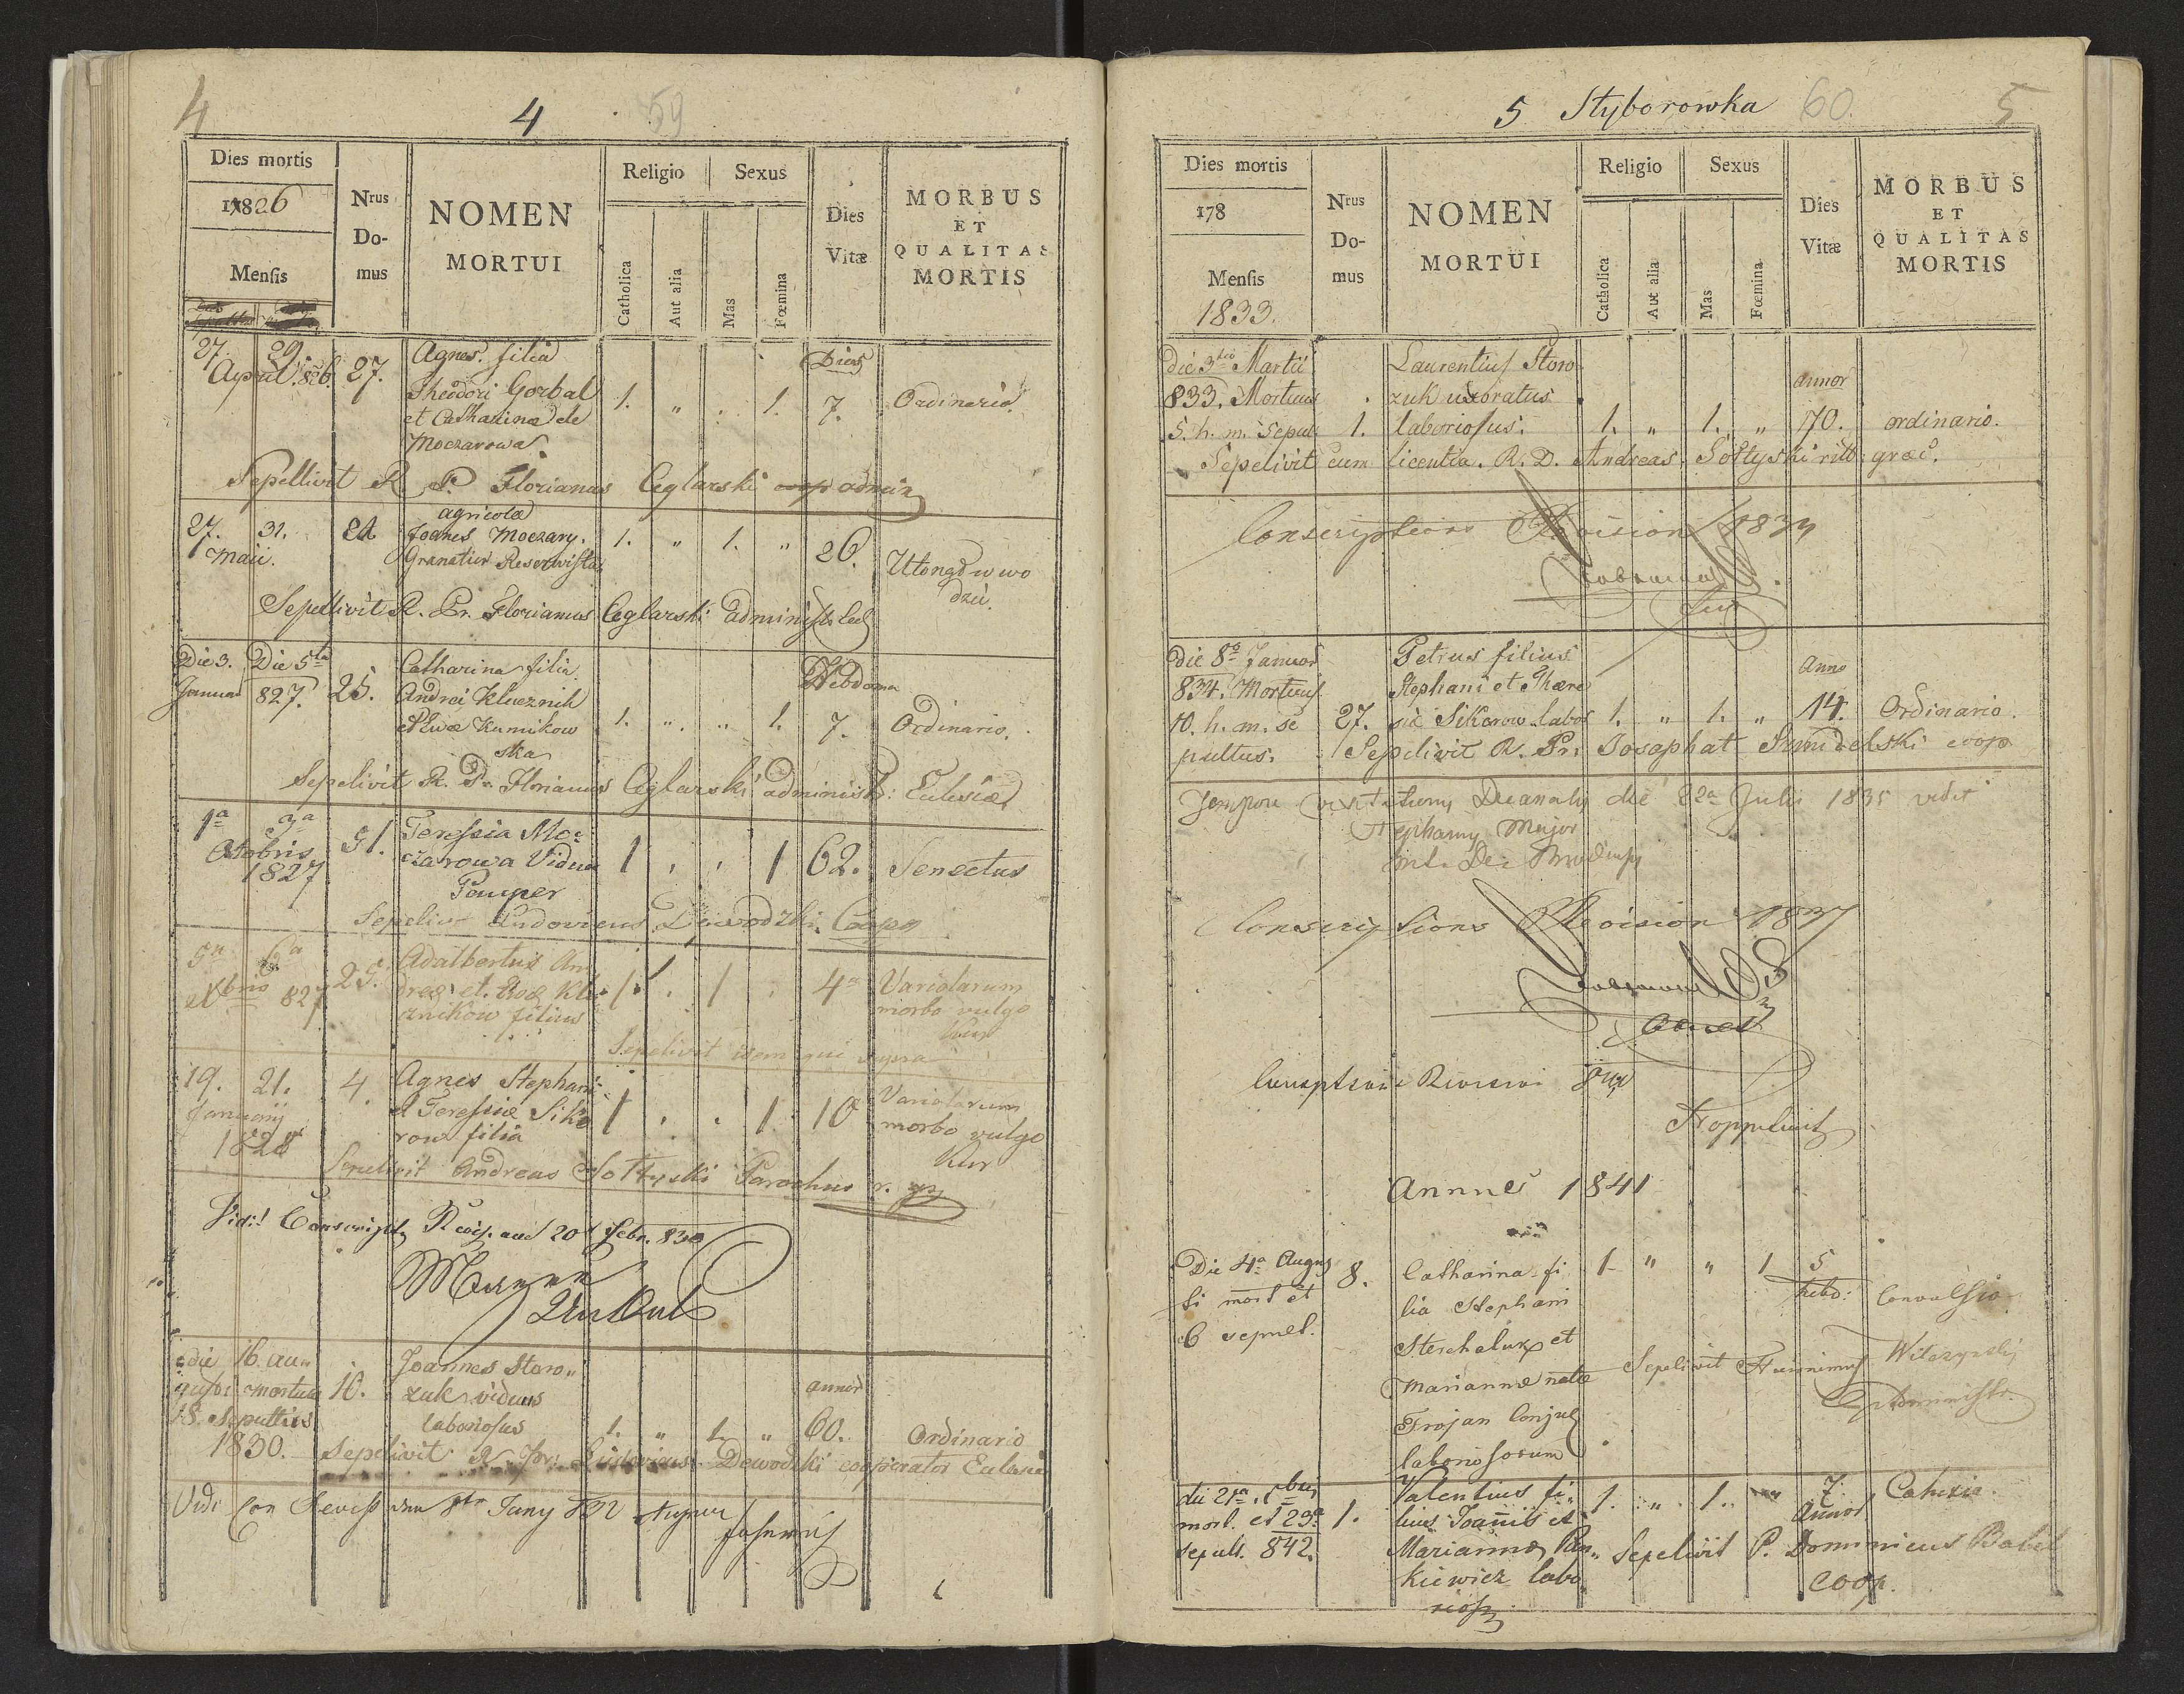 4
4
59
Dies mortis
1826
Mensis
Nrus
Do-
mus
NOMEN
MORTUI
Religio
Sexus
Catholica
Aut alia
Mas
Fœmina
Dies
Vitæ
MORBUS
ET
QUALITAS
MORTIS
27. 29.
April. 826.
27.
Agnes filia
Theodori Gorbal
et Catharina de
Moczarowa.
1. " . 1.
Dies
7.
Ordinaria.
Sepellivit R P. Florianus Ceglarski admin
27. 31.
Maii.
21
agricola
Joanes Moczary.
Granatier Reservista
1. " 1. "
26.
Utonął w wo
dzie.
Sepellivit R. Pr. Florianus Ceglarski administ. Eccl
Die 3. Die 5ta
Januar 827.
25.
Catharina filia
Andrei Klucznik
et Evæ Kumikow
ska
1. " " 1.
Hebdoma
7.
Ordinario.
Sepelivit R. Pr. Florianus Ceglarski administ: Eclesiæ
1a 3a
Octobris
1827
21.
Teressia Mo=
czarowa Vidua
Pauper
1 , , 1
62.
Senectus
Sepeliv Ludovicus Dewodzki Coop
5a 6a
Xbris 827
25.
Adalbertus An
dreæ et Evæ Klu=
cznikow filius
1 . 1 .
4a
Variolarum
morbo vulgo
kur
Sepelivit idem qui supra
19. 21.
Januarij
1828
4.
Agnes Stephani
et Teressiæ Siko
row filia
1 . . 1
10
Variolarum
morbo vulgo
kur
Sepelivit Andreas Sołtyski Parochus r. g.
Vidi! Conscript. Revis. am 20t Febr. 830
die 16. au"
gusti mortuus
18. Sepultus
1830.
10.
Joannes Storo"
zuk viduus
laboriosus
1. " 1. "
annor
60.
Ordinario
Sepelivit R. Pr: Ludovicus Dewodzki cooperator Eclesiæ
Vidi Con Reviss den 8ten Juny 832
5 Styborowka 60. 5
Dies mortis
178
Mensis
1833.
Nrus
Do-
mus
NOMEN
MORTUI
Religio
Sexus
Catholica
Aut alia
Mas
Fœmina
Dies
Vitæ
MORBUS
ET
QUALITAS
MORTIS
die 3tio Martii
833. Mortuus
5. h. m. Sepul:
1.
Laurentius Storo
zuk uxoratus
laboriosus.
1. " 1. "
annor
70.
ordinario.
Sepelivit cum licentia. R. D. Andreas Sołtyski ritt: græc.
Conscriptions Revision 1834
die 8o Januar
834. Mortuus
10. h. m. se
pultus.
27.
Petrus filius
Stephani et There
siæ Sikorow labor
1. " 1. "
Anno
14.
Ordinario.
Sepelivit R. Pr. Josaphat Szmidelski coop
Tempore visitationis Decanalis die 22a Julii 1835 vidit
Conscriptions Revision 1837
Annus 1841
Die 4a Augu
sti mort et
6 sepuel.
8.
Catharina fi
lia Stephani
Sterchaluk et
Mariannæ natæ
Trojan Conjug
laboriosorum
1 " " 1
5
hebd:
Convulsio
Sepelivit Witczynski
Administr
die 21a. 1bris
mort. et 23a
sepult. 842.
1.
Valentius fi"
lius Joanis et
Mariannæ Pan"
kiewicz labo
rios
1. " 1. "
7
Annor.
Cahexia.
Sepelivit P. Dominicus Babel
coop.